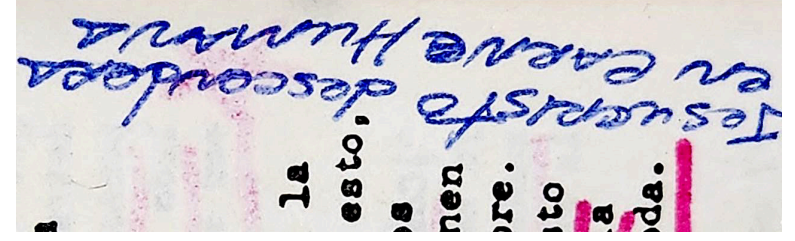 Jesucristo descendera
en carne Humana
a
la
esto,
os
men
bre.
sto
a
oda.